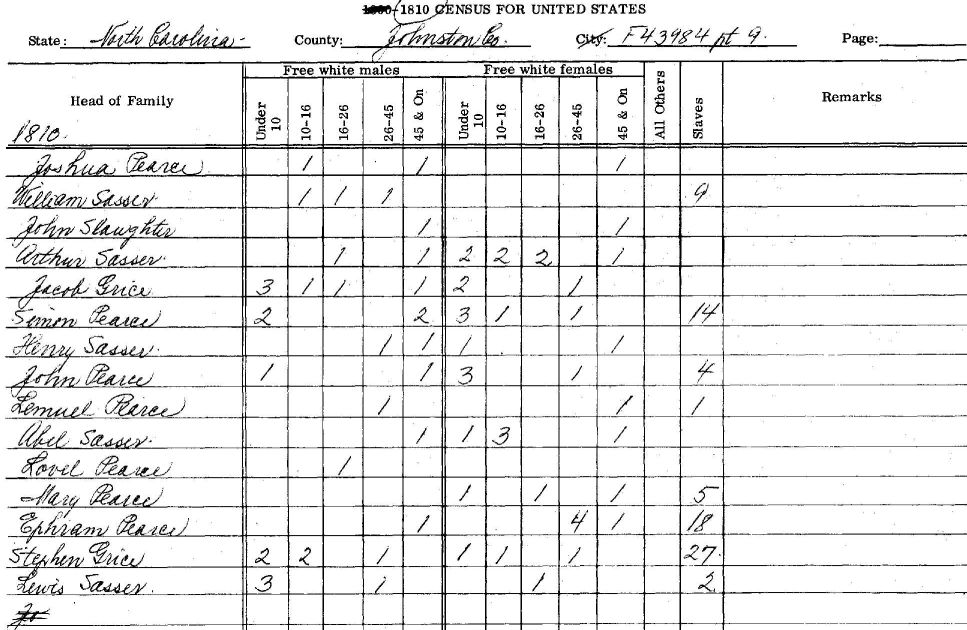 1800-1810 CENSUS FOR UNITED STATES
State: North Carolina County: Johnston Co. City: F43984 pt 9. Page:
Free white males Free white females
Head of Family Under 10 10-16 16-26 26-45 45 & On Under 10 10-16 16-26 26-45 45 & On All Others Slaves Remarks
1810.
Joshua Pearce 1 1 1
William Sasser 1 1 1 9
John Slaughter 1 1
Arthur Sasser 1 1 2 2 2 1
Jacob Grice 3 1 1 1 2 1
Simon Pearce 2 2 3 1 1 14
Henry Sasser 1 1 1 1
John Pearce 1 1 3 1 4
Lemuel Pearce 1 1 1
Abel Sasser 1 1 3 1
Lovel Pearce 1
Mary Pearce 1 1 1 5
Ephram Pearce 1 4 1 18
Stephen Grice 2 2 1 1 1 1 27
Lewis Sasser 3 1 1 2
Jo